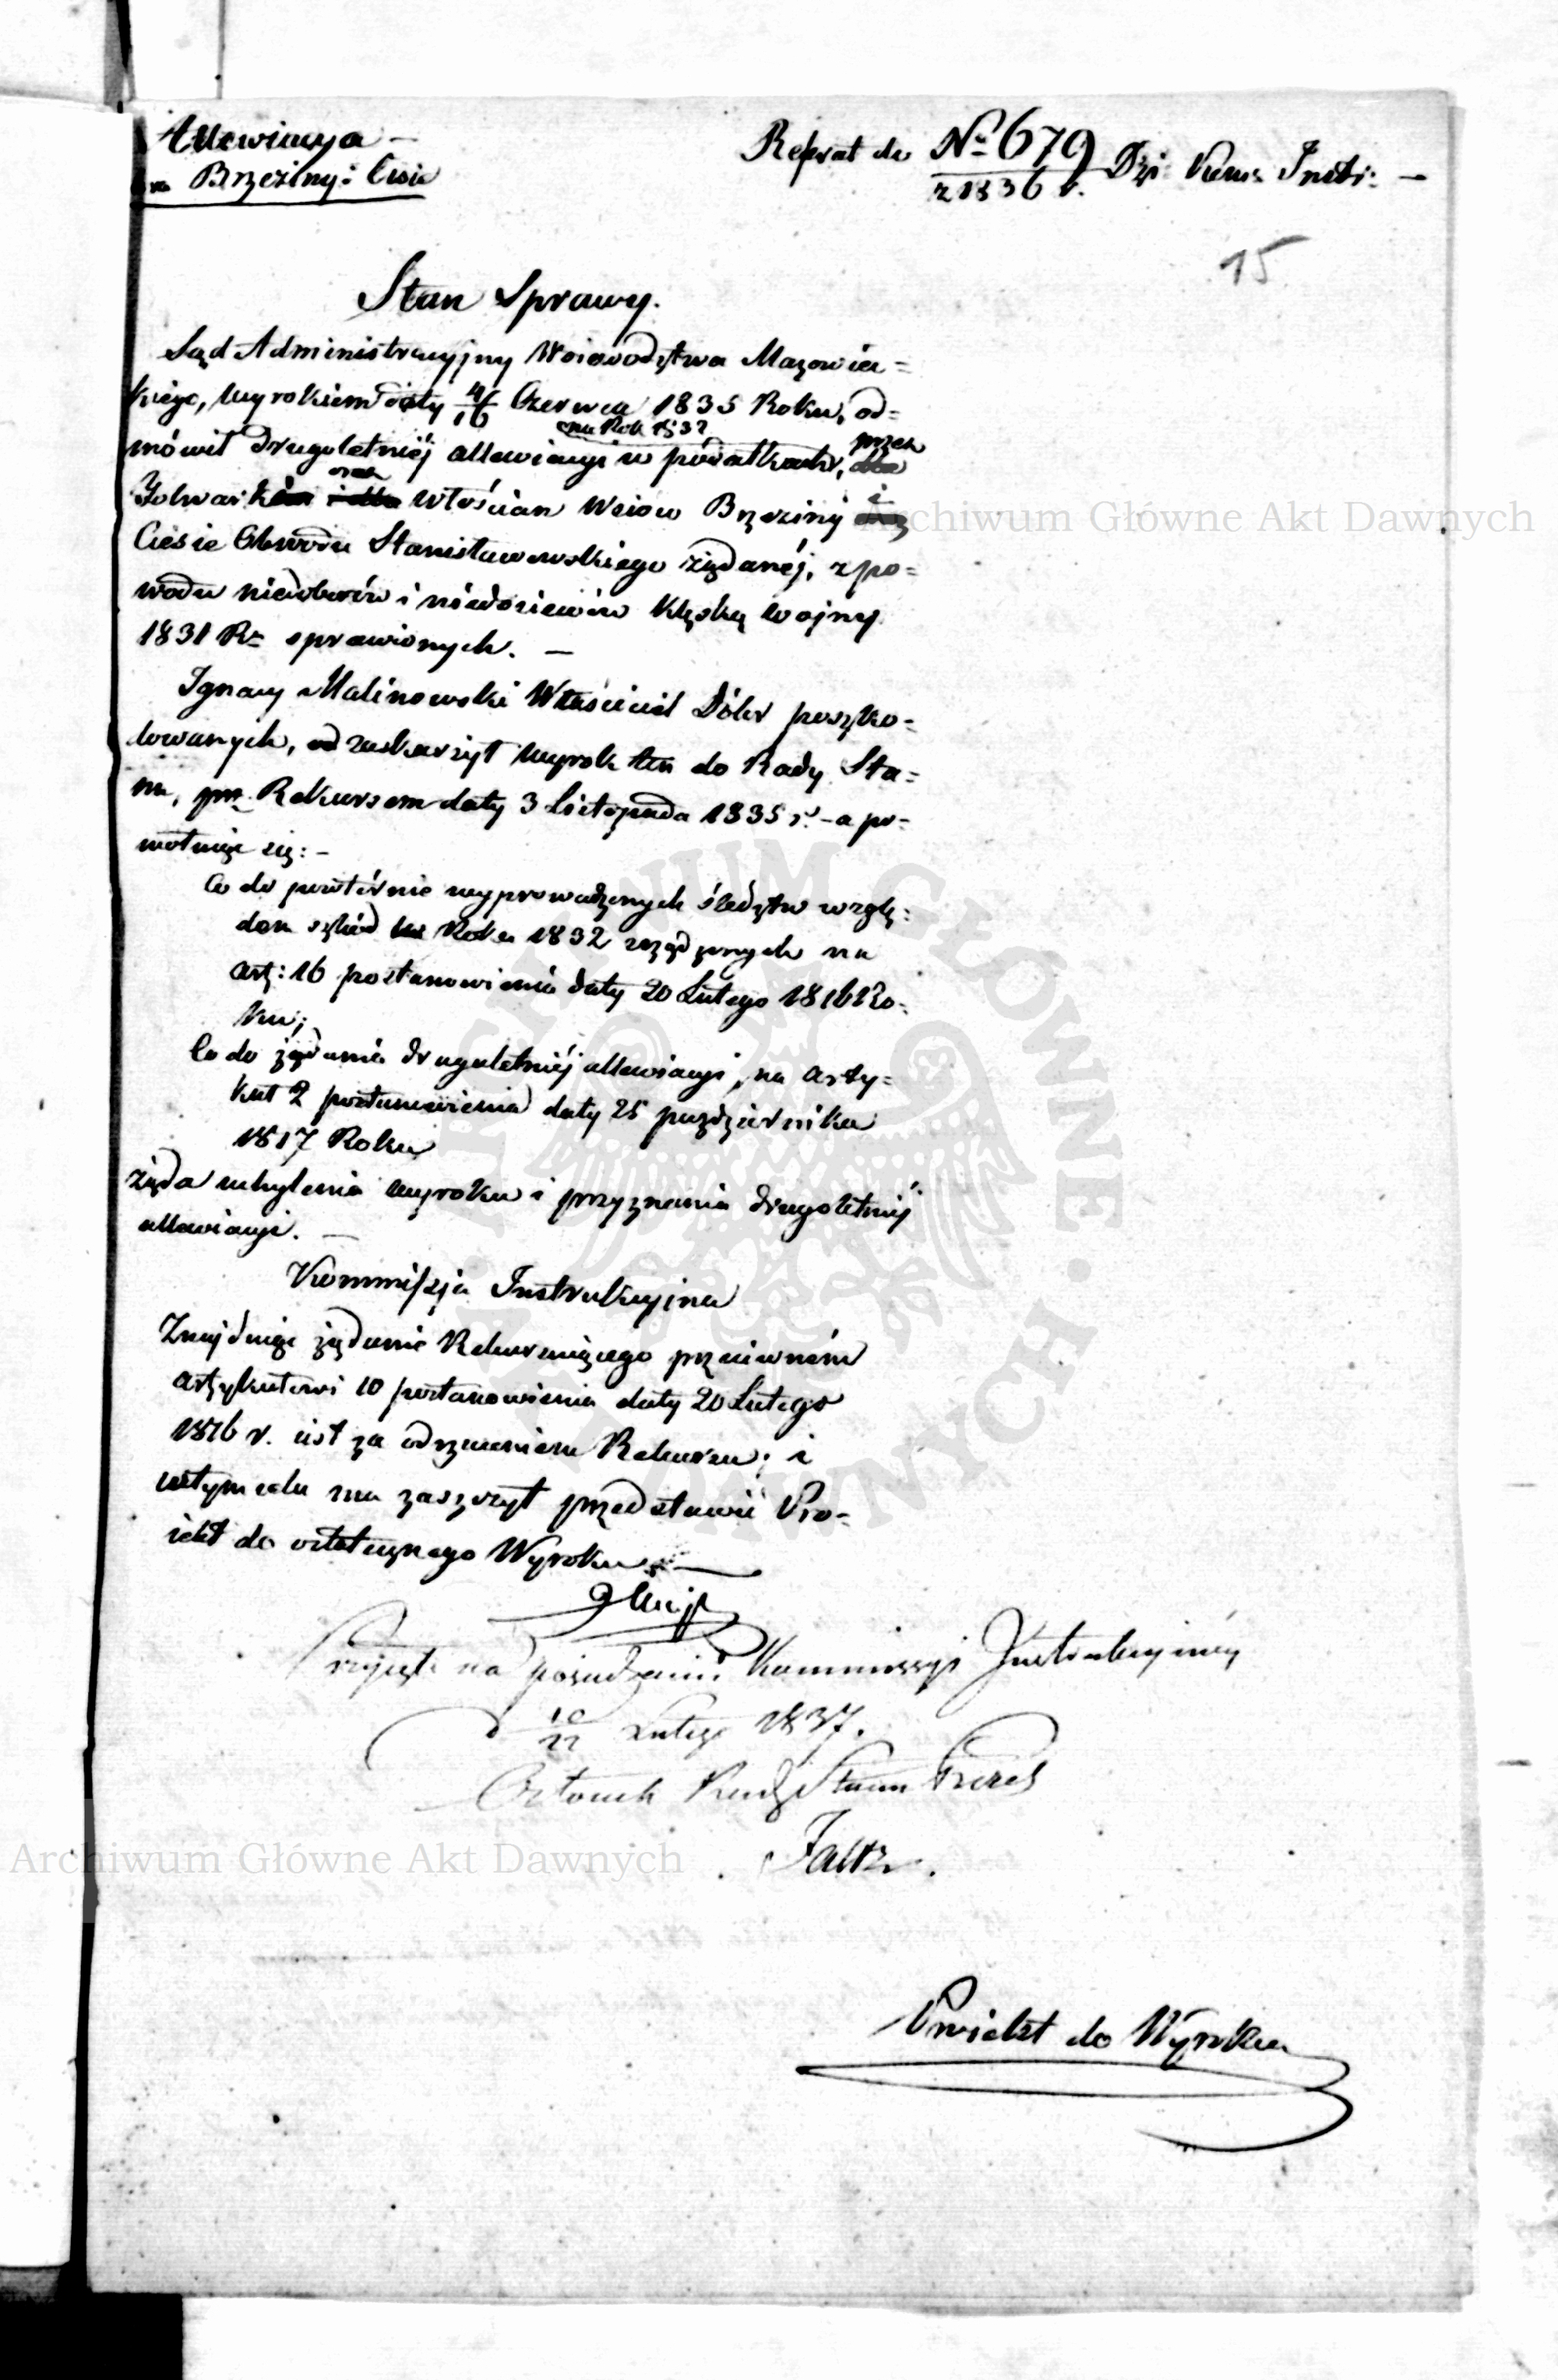 Allewiacya —
wsi Brzeziny i Ciesie
Referat do No 679 Dzi: Komis: Instr: —
z 1836 r.
15
Stan Sprawy.
Sąd Administracyjny Woiewodztwa Mazowiec=
kiego, wyrokiem daty 4/16 Czerwca 1835 Roku, od=
na Rok 1832 przez
mówił drugoletniéj allewiacyi w podatkach,
oraz i
Folwark włościan Wsiow Brzeziny
Ciesie Obwodu Stanisławowskiego żądanéj, z po=
wodu niedoborów i niedosiewów klęską wojny
1831 Ru sprawionych. —
Ignacy Malinowski Właściciel Dóbr poszko=
dowanych, zaskarżył wyrok ten do Rady Sta=
nu, Rekursem daty 3 Listopada 1835 r. – a po=
wołując się: –
Co do powtórnie wyprowadzonych śledztw wzglę=
dem szkód Roku 1832 zrządzonych na
art: 16 postanowienia daty 20 Lutego 1816 Ro=
ku;
Co do żądania drugoletniéj allewiacyi, na arty=
kuł 2 postanowienia daty 25 października
1817 Roku
żąda uchylenia wyroku i przyznania drugoletniéj
allewiacyi. —
Kommissja Instrukcyjna
Znajdując żądanie Rekurującego przeciwném
artykułowi 10 postanowienia daty 20 Lutego
1816 r. iest za odrzuceniem Rekursu; i
wtym celu ma zaszczyt przedstawić Pro=
iekt do ostatecznego Wyroku. —
Przyjęto na posiedzeniu Kommissyi Instrukcyinéy
d 10/22 Lutego 1837.
Członek Rady Stanu Prezes
Faltz.
Proiekt do Wyroku
Archiwum Główne Akt Dawnych
Archiwum Główne Akt Dawnych
ARCHIWUM GŁÓWNE AKT DAWNYCH